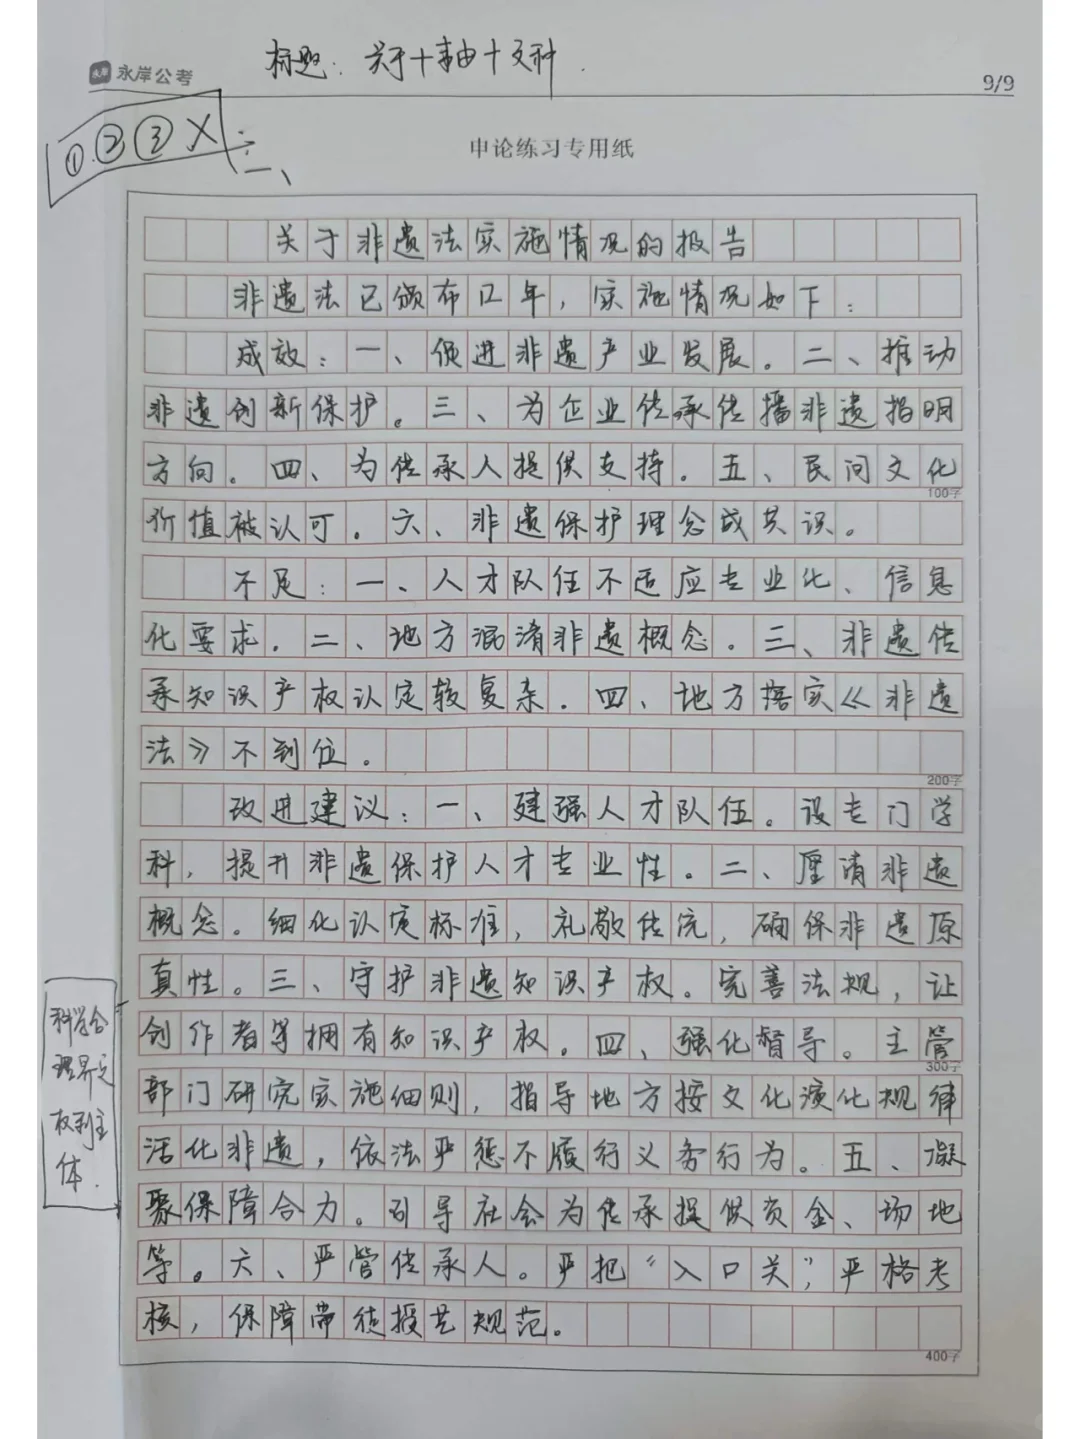 标题：关于+事由+文种.
永岸公考
9/9
①②③X
一、
申论练习专用纸
关于非遗法实施情况的报告
非遗法已颁布12年，实施情况如下：
成效：一、促进非遗产业发展。二、推动
非遗创新保护。三、为企业传承传播非遗指明
方向。四、为传承人提供支持。五、民间文化
100字
价值被认可。六、非遗保护理念成共识。
不足：一、人才队伍不适应专业化、信息
化要求。二、地方混淆非遗概念。三、非遗传
承知识产权认定较复杂。四、地方落实《非遗
法》不到位。
200字
改进建议：一、建强人才队伍。设专门学
科，提升非遗保护人才专业性。二、厘清非遗
概念。细化认定标准，礼敬传统，确保非遗原
真性。三、守护非遗知识产权。完善法规，让
创作者等拥有知识产权。四、强化督导。主管
300字
部门研究实施细则，指导地方按文化演化规律
活化非遗，依法严惩不履行义务行为。五、凝
聚保障合力。引导社会为传承提供资金、场地
等。六、严管传承人。严把“入口关”，严格考
核，保障带徒授艺规范。
400字
科学合
理界定
权利主
体.